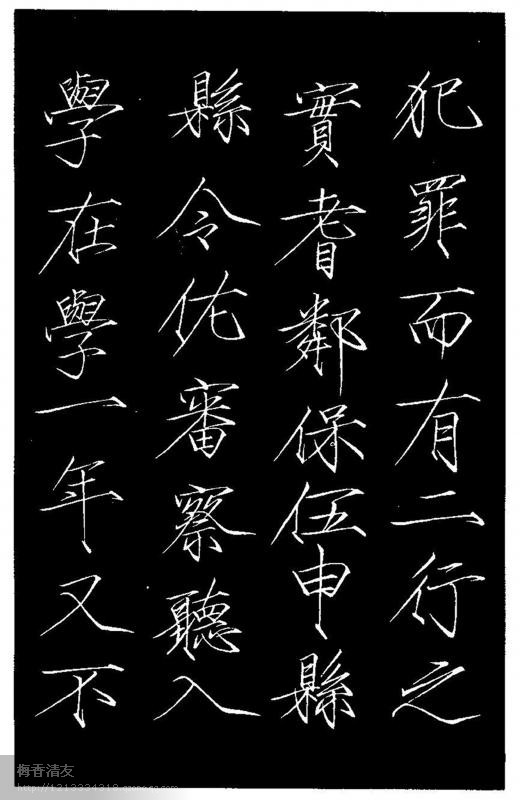 犯罪而有二行之
實耆鄰保伍申縣
縣令佐審察聽入
學在學一年又不
梅香清友